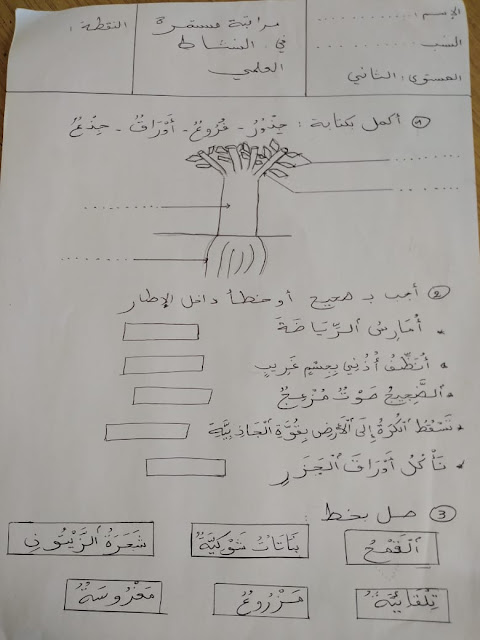 الإسم : . . . . . . . .
النسب . . . . . . . . . .
المستوى : الثاني
مراقبة مستمرة
في : النشاط
العلمي
النقطة :
① أكمل بكتابة : جُذُورٌ - فُرُوعٌ - أَوْرَاقٌ - جِذْعٌ
② أجب بـ صحيح أو خطأ داخل الإطار
أُمَارِسُ الرِّيَاضَةَ
أُنَظِّفُ أُذُنِي بِجِسْمٍ غَرِيبٍ
الضَّجِيجُ صَوْتٌ مُزْعِجٌ
تَسْقُطُ الْكُرَةُ إِلَى الْأَرْضِ بِقُوَّةِ الْجَاذِبِيَّةِ
نَأْكُلُ أَوْرَاقَ الْجَزَرِ
③ صل بخط :
الْقَمْحُ
نَبَاتَاتٌ شَوْكِيَّةٌ
شَجَرَةُ الزَّيْتُونِ
تِلْقَائِيَّةٌ
مَزْرُوعٌ
مَغْرُوسَةٌ